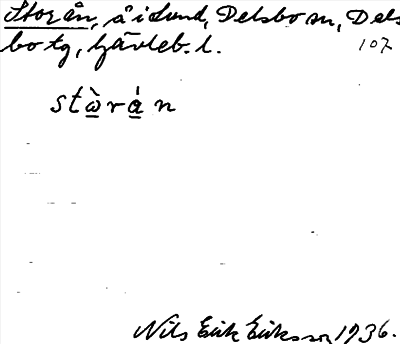 Storån, å i Lund, Delsbo sn, Dels
bo tg, Gävleb. l.
107
stὼ̠rá̠n
Nils Erik Eriksson 1936.